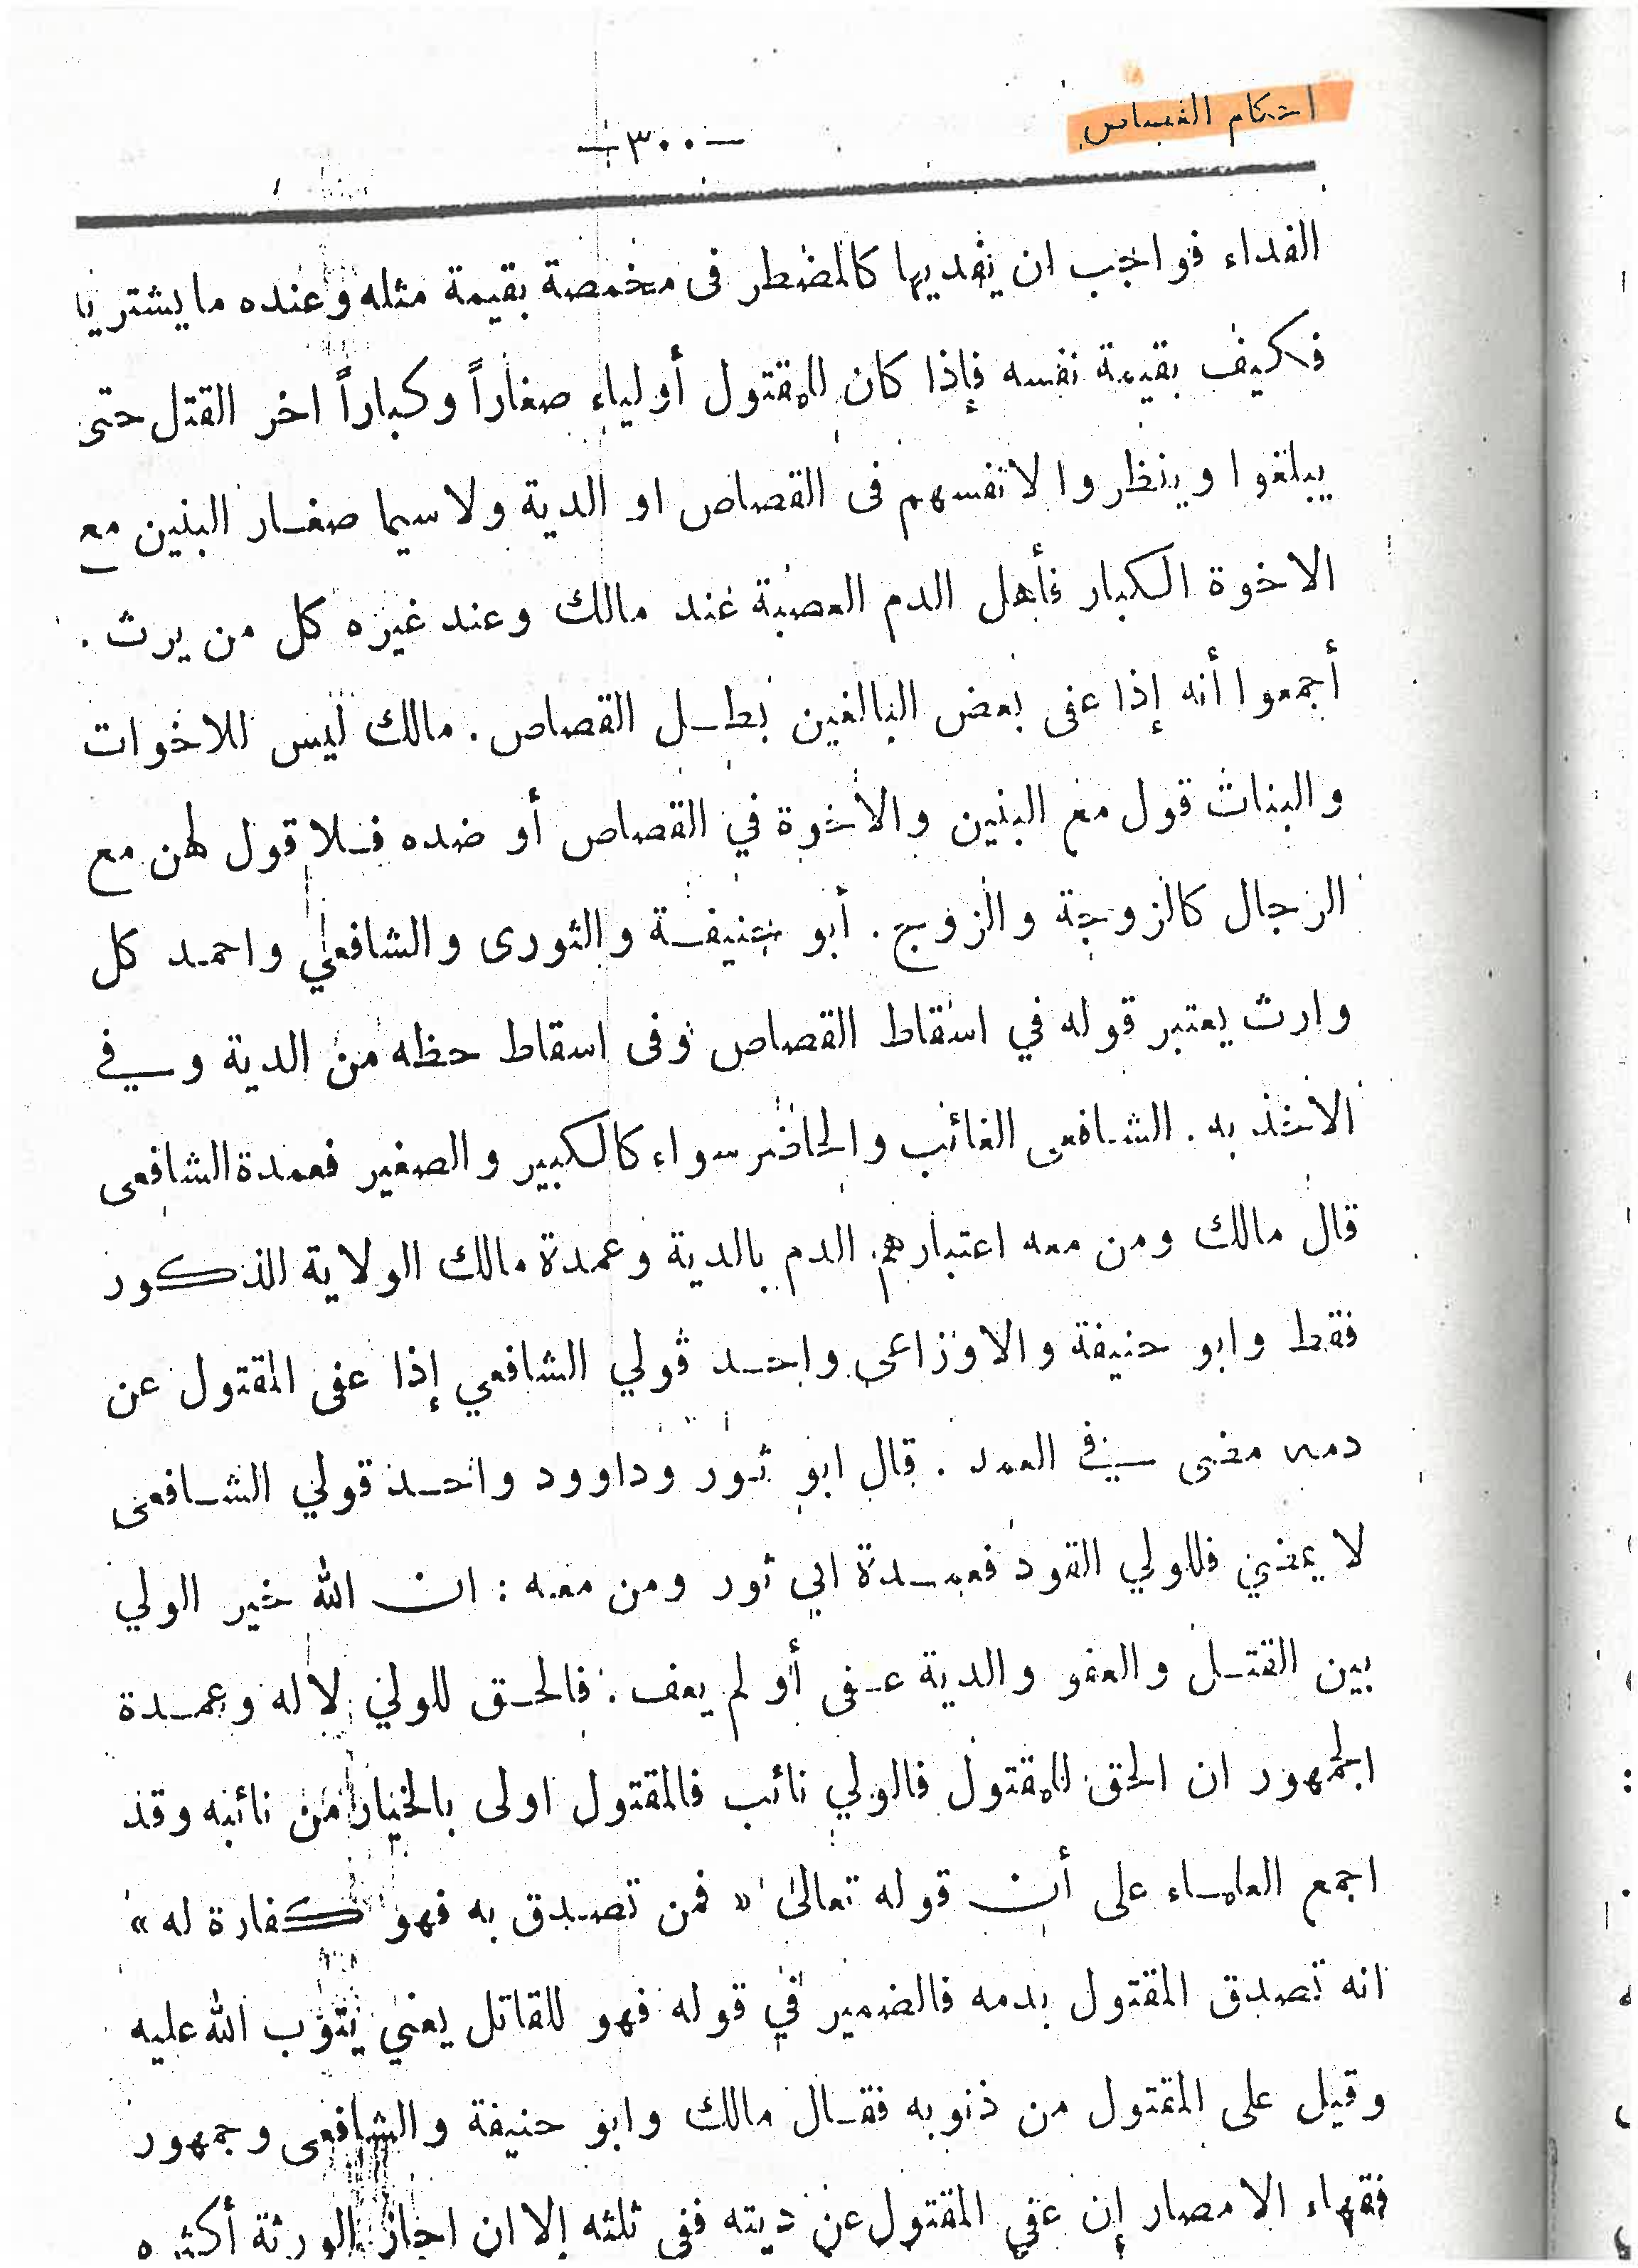 احكام القصاص
—٣٠٠—
الفداء فواجب ان يفديها كالمضطر فى مخمصة بقيمة مثله وعنده ما يشتريا
فكيف بقيمة نفسه فإذا كان للمقتول أولياء صغاراً وكباراً اخر القتل حتى
يبلغوا وينظروا لانفسهم فى القصاص او الدية ولا سيما صغار البنين مع
الاخوة الكبار فأهل الدم العصبة عند مالك وعند غيره كل من يرث .
أجمعوا أنه إذا عفى بعض البالغين بطل القصاص . مالك ليس للاخوات
والبنات قول مع البنين والأخوة في القصاص أو ضده فلا قول لهن مع
الرجال كالزوجة والزوج . أبو حنيفة والثورى والشافعلي واحمد كل
وارث يعتبر قوله في اسقاط القصاص وفى اسقاط حظه من الدية وفي
الاخذ به . الشافعى الغائب والحاضر سواء كالكبير والصغير فعمدة الشافعى
قال مالك ومن معه اعتبارهم الدم بالدية وعمدة مالك الولاية الذكور
فقط وابو حنيفة والاوزاعى واحد قولي الشافعي إذا عفى المقتول عن
دمه مضى في العمد . قال ابو ثور وداوود واحد قولي الشافعى
لا يمضي فللولي القود فعمدة ابي ثور ومن معه : ان الله خير الولي
بين القتل والعفو والدية عفى أو لم يعف . فالحق للولي لا له وعمدة
الجمهور ان الحق للمقتول فالولي نائب فالمقتول اولى بالخيار من نائبه وقد
اجمع العلماء على أن قوله تعالى « فمن تصدق به فهو كفارة له »
انه تصدق المقتول بدمه فالضمير في قوله فهو للقاتل يعني يتوب الله عليه
وقيل على المقتول من ذنوبه فقال مالك وابو حنيفة والشافعى وجمهور
فقهاء الامصار إن عفى المقتول عن ديته ففى ثلثه إلا ان اجاز الورثة أكثره